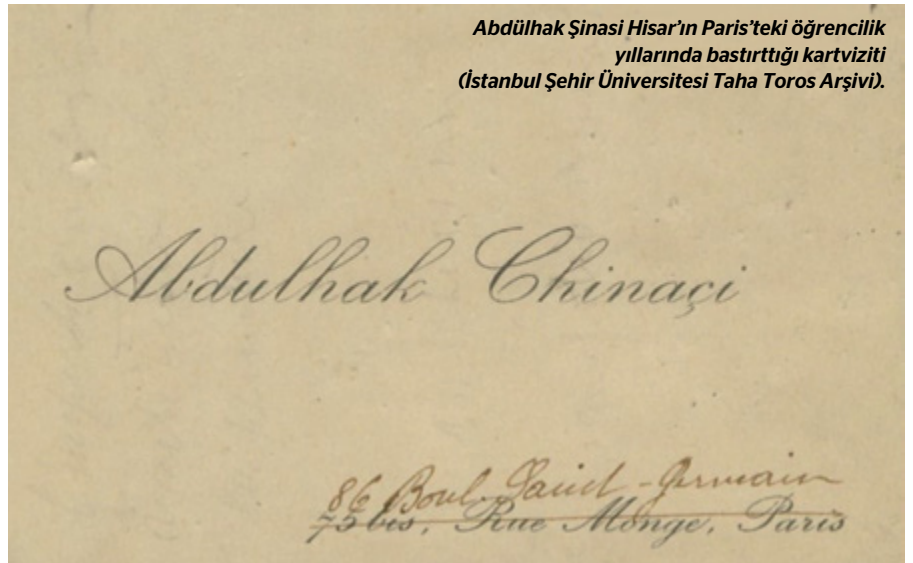 Abdülhak Şinasi Hisar’ın Paris’teki öğrencilik
yıllarında bastırttığı kartviziti
(İstanbul Şehir Üniversitesi Taha Toros Arşivi).
Abdulhak Chinaçi
86 Boul Saint-Germain
75 bis, Rue Monge, Paris